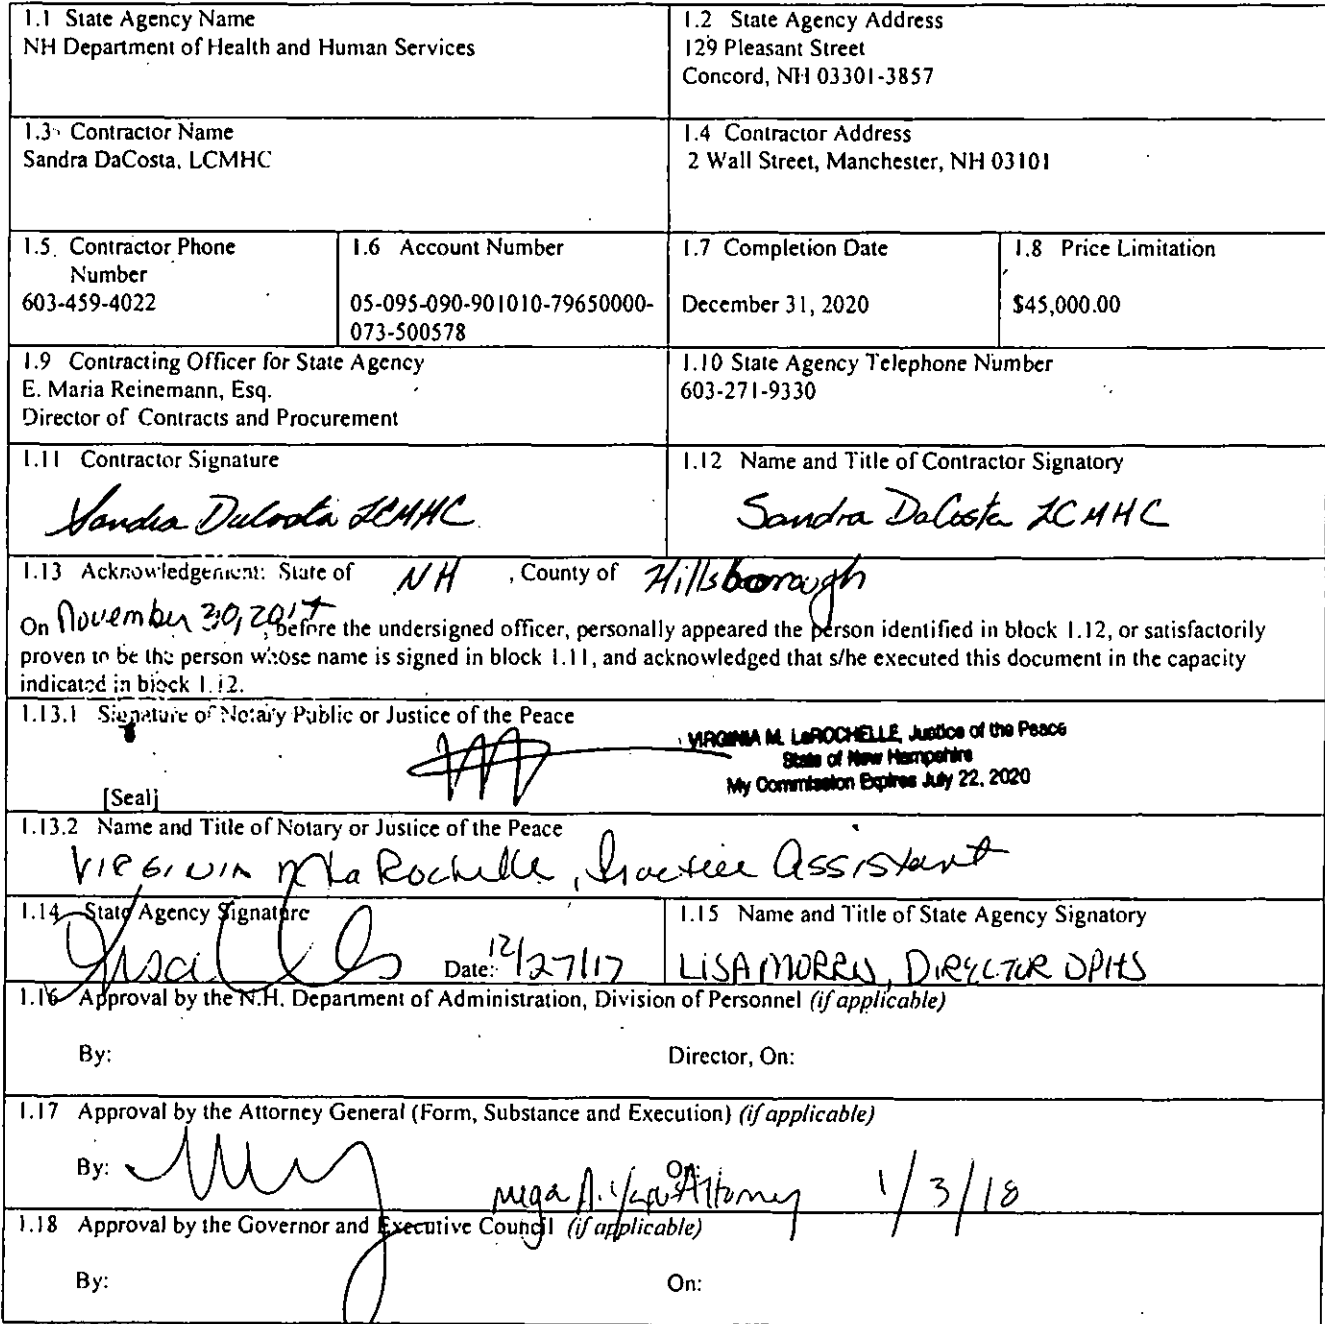 1.1 State Agency Name
NH Department of Health and Human Services
1.2 State Agency Address
129 Pleasant Street
Concord, NH 03301-3857
1.3 Contractor Name
Sandra DaCosta, LCMHC
1.4 Contractor Address
2 Wall Street, Manchester, NH 03101
1.5 Contractor Phone
Number
603-459-4022
1.6 Account Number
05-095-090-901010-79650000-
073-500578
1.7 Completion Date
December 31, 2020
1.8 Price Limitation
$45,000.00
1.9 Contracting Officer for State Agency
E. Maria Reinemann, Esq.
Director of Contracts and Procurement
1.10 State Agency Telephone Number
603-271-9330
1.11 Contractor Signature
Sandra DaCosta LCMHC
1.12 Name and Title of Contractor Signatory
Sandra DaCosta LCMHC
1.13 Acknowledgement: State of NH , County of Hillsborough
On November 30, 2017, before the undersigned officer, personally appeared the person identified in block 1.12, or satisfactorily
proven to be the person whose name is signed in block 1.11, and acknowledged that s/he executed this document in the capacity
indicated in block 1.12.
1.13.1 Signature of Notary Public or Justice of the Peace
VIRGINIA M. LaROCHELLE, Justice of the Peace
State of New Hampshire
My Commission Expires July 22, 2020
[Seal]
1.13.2 Name and Title of Notary or Justice of the Peace
VIRGINIA M LaRochelle, Practice Assistant
1.14 State Agency Signature
Date: 12/27/17
1.15 Name and Title of State Agency Signatory
LISA MORRIS, DIRECTOR DPHS
1.16 Approval by the N.H. Department of Administration, Division of Personnel (if applicable)
By:
Director, On:
1.17 Approval by the Attorney General (Form, Substance and Execution) (if applicable)
By:
On:
Attorney 1/3/18
1.18 Approval by the Governor and Executive Council (if applicable)
By:
On: